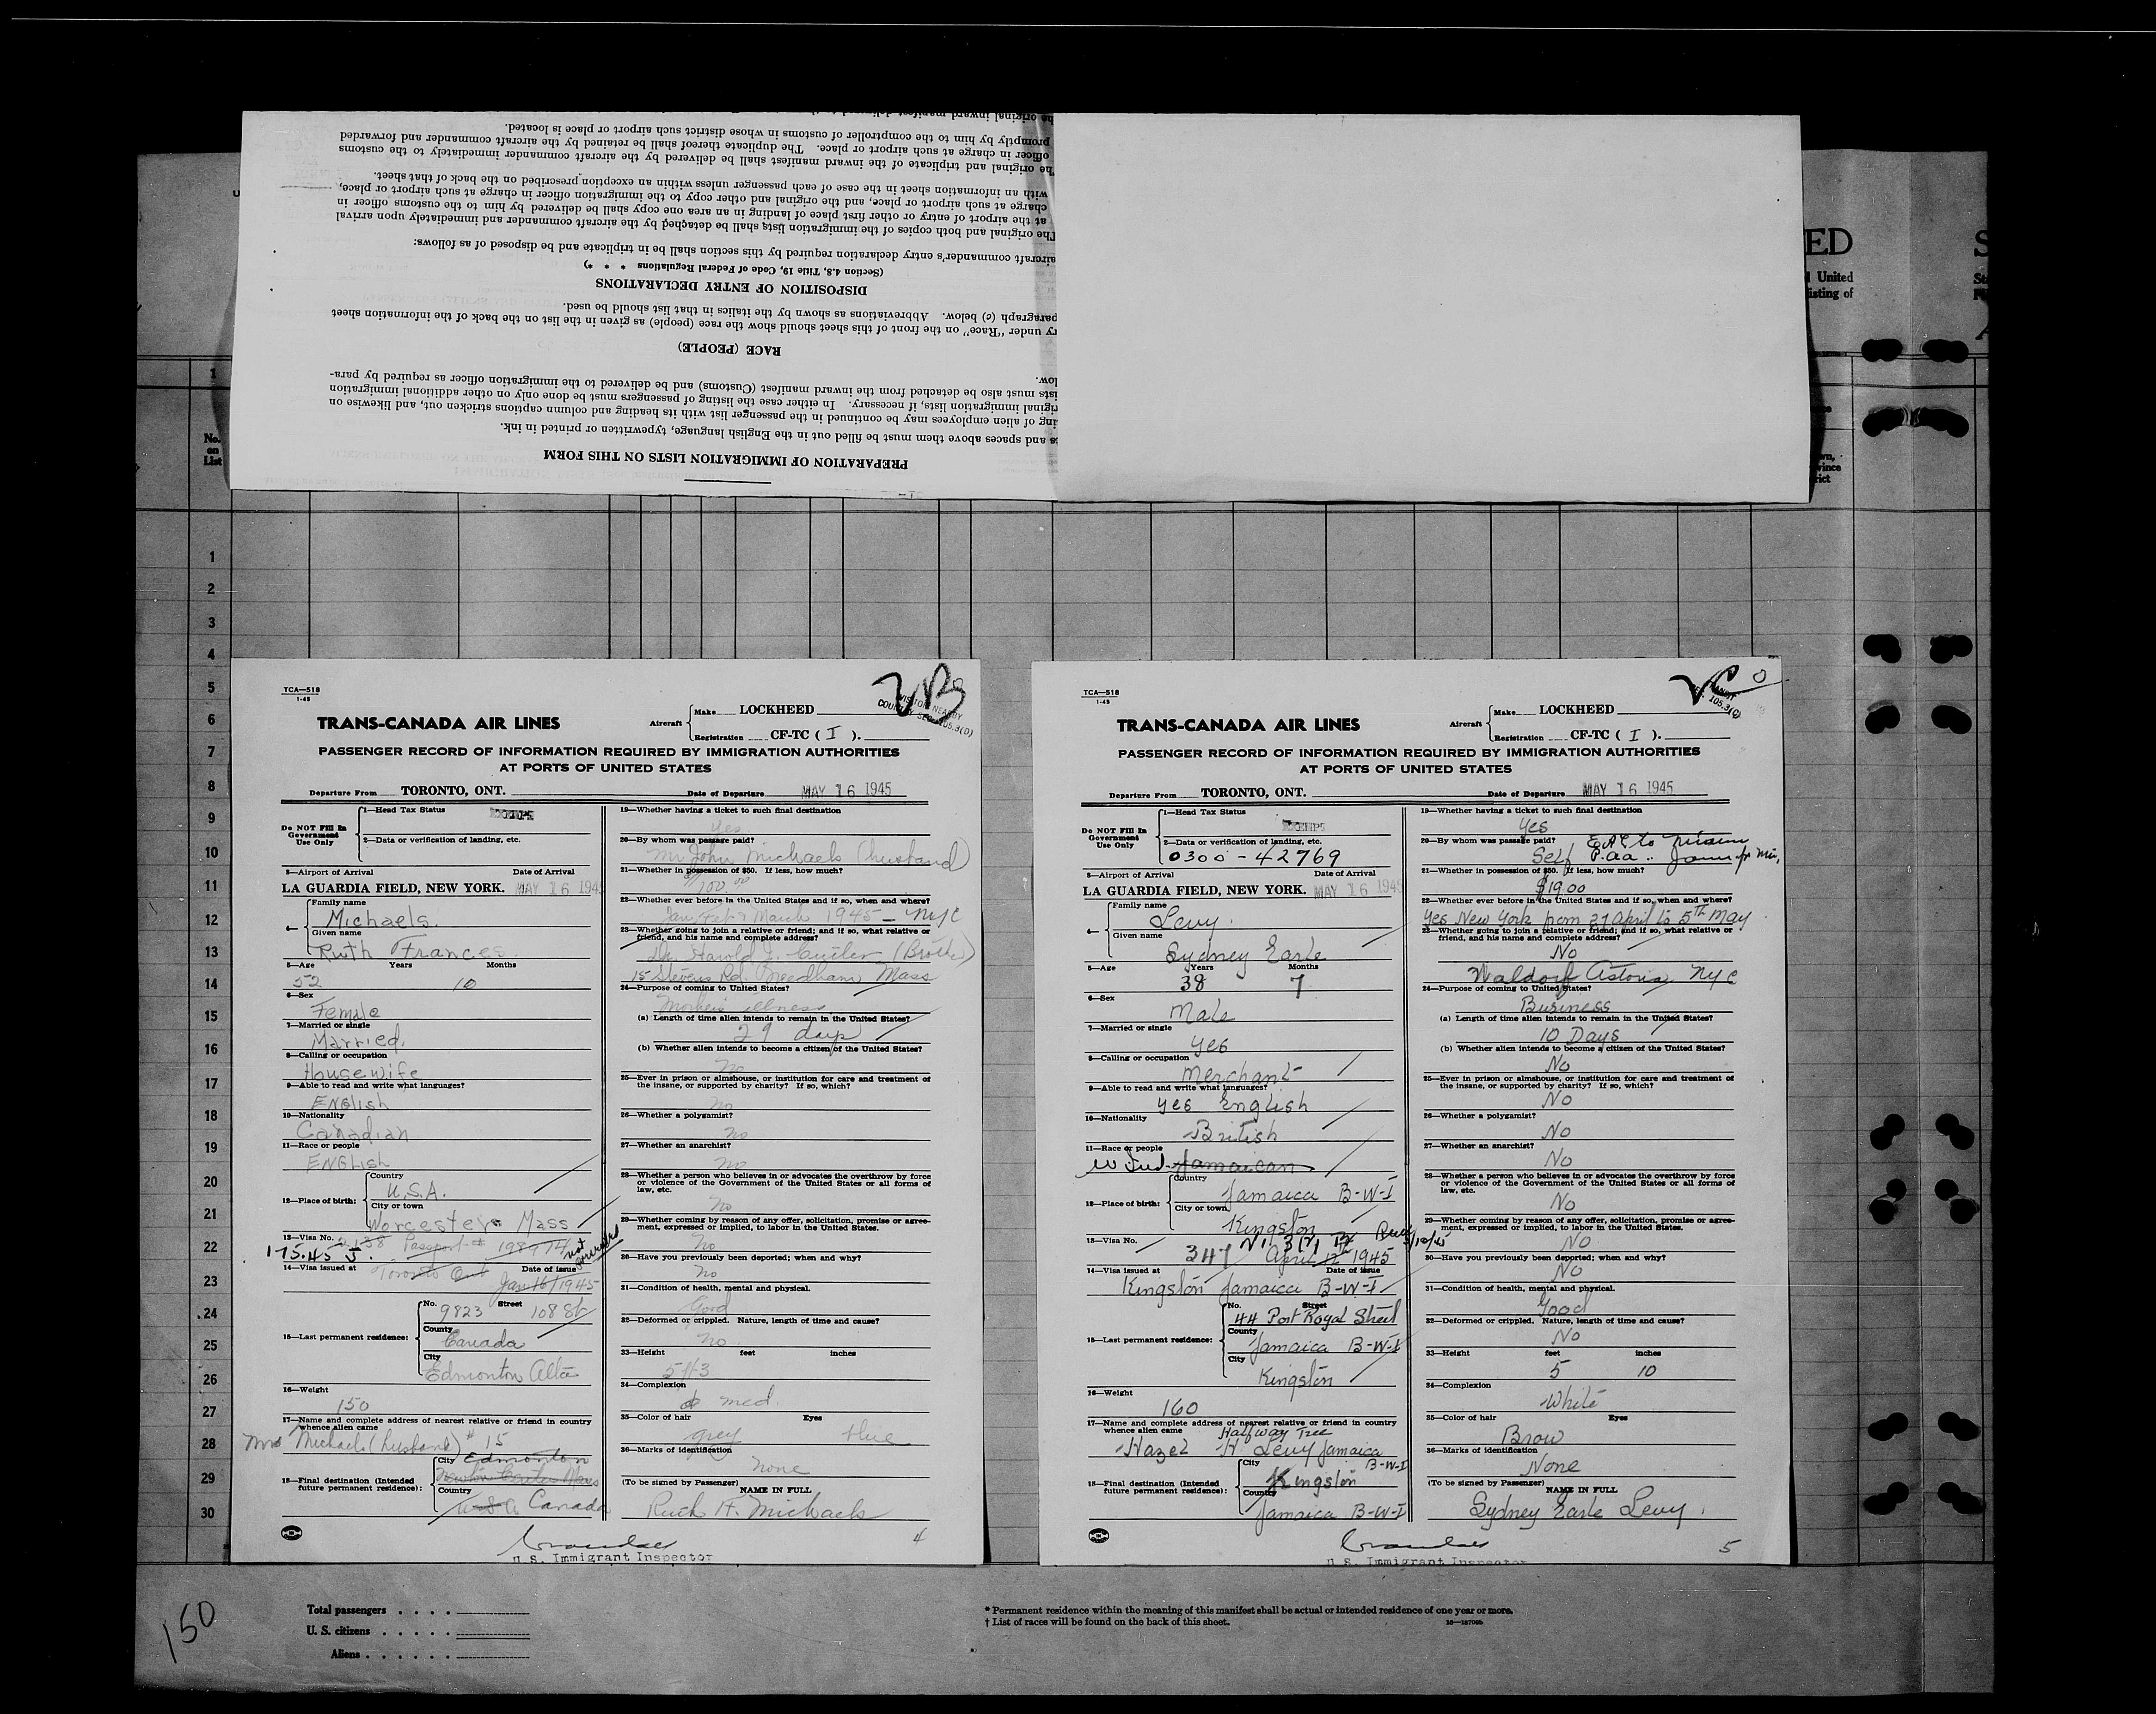 PREPARATION OF IMMIGRATION LISTS ON THIS FORM
s and spaces above them must be filled out in the English language, typewritten or printed in ink.
ing of alien employees may be continued in the passenger list with its heading and column captions stricken out, and likewise on
riginal immigration lists, if necessary. In either case the listing of passengers must be done only on other additional immigration
ists must also be detached from the inward manifest (Customs) and be delivered to the immigration officer as required by para-
low.
RACE (PEOPLE)
ry under "Race" on the front of this sheet should show the race (people) as given in the list on the back of the information sheet
paragraph (c) below. Abbreviations as shown by the italics in that list should be used.
DISPOSITION OF ENTRY DECLARATIONS
(Section 4.8, Title 19, Code of Federal Regulations * * *)
aircraft commander's entry declaration required by this section shall be in triplicate and be disposed of as follows:
The original and both copies of the immigration lists shall be detached by the aircraft commander and immediately upon arrival
at the airport of entry or other first place of landing in an area one copy shall be delivered by him to the customs officer in
charge at such airport or place, and the original and other copy to the immigration officer in charge at such airport or place,
with an information sheet in the case of each passenger unless within an exception prescribed on the back of that sheet.
The original and triplicate of the inward manifest shall be delivered by the aircraft commander immediately to the customs
officer in charge at such airport or place. The duplicate thereof shall be retained by the aircraft commander and forwarded
promptly by him to the comptroller of customs in whose district such airport or place is located.
he original inward manifest
ED
United
isting of
No.
on
List
1
2
3
4
5
6
7
8
9
10
11
12
13
14
15
16
17
18
19
20
21
22
23
24
25
26
27
28
29
30
TCA—518
1-45
TRANS-CANADA AIR LINES
Aircraft
Make LOCKHEED
Registration CF-TC ( I ).
VISITOR NEARBY
COUNTRY SEC. 105.3(D)
PASSENGER RECORD OF INFORMATION REQUIRED BY IMMIGRATION AUTHORITIES
AT PORTS OF UNITED STATES
Departure From TORONTO, ONT. Date of Departure MAY 16 1945
Do NOT Fill In
Government
Use Only
1—Head Tax Status
2—Data or verification of landing, etc.
3—Airport of Arrival Date of Arrival
LA GUARDIA FIELD, NEW YORK. MAY 16 194
4— Family name
Michaels.
Given name
Ruth Frances.
5—Age Years Months
52 10
6—Sex
Female
7—Married or single
Married.
8—Calling or occupation
Housewife
9—Able to read and write what languages?
ENGlish
10—Nationality
Canadian
11—Race or people
ENGlish
12—Place of birth: Country
U.S.A.
City or town
Worcester Mass
13—Visa No. 2138 Passport #
175.45 J.
14—Visa issued at Date of issue
Toronto Ont Jan 16/1945
15—Last permanent residence:
No. Street
9823 108 St
County
Canada
City
Edmonton Alta
16—Weight
150
17—Name and complete address of nearest relative or friend in country
whence alien came
Michaels (husband) # 15
18—Final destination (Intended
future permanent residence):
City Edmonton
Country
U.S.A Canada
19—Whether having a ticket to such final destination
Yes
20—By whom was passage paid?
Mr John Michaels (husband)
21—Whether in possession of $50. If less, how much?
$100.00
22—Whether ever before in the United States and if so, when and where?
Jan, Feb & March 1945 — NYC
23—Whether going to join a relative or friend; and if so, what relative or
friend, and his name and complete address?
Dr. Harold J. Cutler (Brother)
15 Stevens Rd. Needham Mass
24—Purpose of coming to United States?
Mother's illness
(a) Length of time alien intends to remain in the United States?
29 days
(b) Whether alien intends to become a citizen of the United States?
No
25—Ever in prison or almshouse, or institution for care and treatment of
the insane, or supported by charity? If so, which?
No
26—Whether a polygamist?
No
27—Whether an anarchist?
No
28—Whether a person who believes in or advocates the overthrow by force
or violence of the Government of the United States or all forms of
law, etc.
No
29—Whether coming by reason of any offer, solicitation, promise or agree-
ment, expressed or implied, to labor in the United States.
No
30—Have you previously been deported; when and why?
No
31—Condition of health, mental and physical.
Good
32—Deformed or crippled. Nature, length of time and cause?
No
33—Height feet inches
5 ft 3
34—Complexion
med.
35—Color of hair Eyes
grey blue
36—Marks of identification
none
(To be signed by Passenger)
NAME IN FULL
Ruth F. Michaels
U. S. Immigrant Inspector
4
TCA—518
1-45
TRANS-CANADA AIR LINES
Aircraft
Make LOCKHEED
Registration CF-TC ( I ).
105.3(C)
PASSENGER RECORD OF INFORMATION REQUIRED BY IMMIGRATION AUTHORITIES
AT PORTS OF UNITED STATES
Departure From TORONTO, ONT. Date of Departure MAY 16 1945
Do NOT Fill In
Government
Use Only
1—Head Tax Status
2—Data or verification of landing, etc.
0300-42769
3—Airport of Arrival Date of Arrival
LA GUARDIA FIELD, NEW YORK. MAY 16 194
4— Family name
Levy.
Given name
Sydney Earle
5—Age Years Months
38 7
6—Sex
Male
7—Married or single
yes
8—Calling or occupation
Merchant
9—Able to read and write what languages?
yes English
10—Nationality
British
11—Race or people
W Ind Jamaican
12—Place of birth: Country
Jamaica B-W-I
City or town
Kingston
13—Visa No.
347 April 12th 1945
14—Visa issued at Date of issue
Kingston Jamaica B-W-I
15—Last permanent residence:
No. Street
44 Port Royal Street
County
Jamaica B-W-I
City
Kingston
16—Weight
160
17—Name and complete address of nearest relative or friend in country
whence alien came Halfway Tree
Hazel H Levy Jamaica
B-W-I
18—Final destination (Intended
future permanent residence):
City
Kingston
Country
Jamaica B-W-I
19—Whether having a ticket to such final destination
Yes
20—By whom was passage paid?
Self
21—Whether in possession of $50. If less, how much?
$19.00
22—Whether ever before in the United States and if so, when and where?
Yes New York from 27 April to 5th May
23—Whether going to join a relative or friend; and if so, what relative or
friend, and his name and complete address?
No
Waldorf Astoria NYC
24—Purpose of coming to United States?
Business
(a) Length of time alien intends to remain in the United States?
10 Days
(b) Whether alien intends to become a citizen of the United States?
No
25—Ever in prison or almshouse, or institution for care and treatment of
the insane, or supported by charity? If so, which?
No
26—Whether a polygamist?
No
27—Whether an anarchist?
No
28—Whether a person who believes in or advocates the overthrow by force
or violence of the Government of the United States or all forms of
law, etc.
No
29—Whether coming by reason of any offer, solicitation, promise or agree-
ment, expressed or implied, to labor in the United States.
No
30—Have you previously been deported; when and why?
No
31—Condition of health, mental and physical.
Good
32—Deformed or crippled. Nature, length of time and cause?
No
33—Height feet inches
5 10
34—Complexion
White
35—Color of hair Eyes
Brow
36—Marks of identification
None
(To be signed by Passenger)
NAME IN FULL
Sydney Earle Levy.
U. S. Immigrant Inspector
5
150
Total passengers
U. S. citizens
Aliens
* Permanent residence within the meaning of this manifest shall be actual or intended residence of one year or more.
† List of races will be found on the back of this sheet.